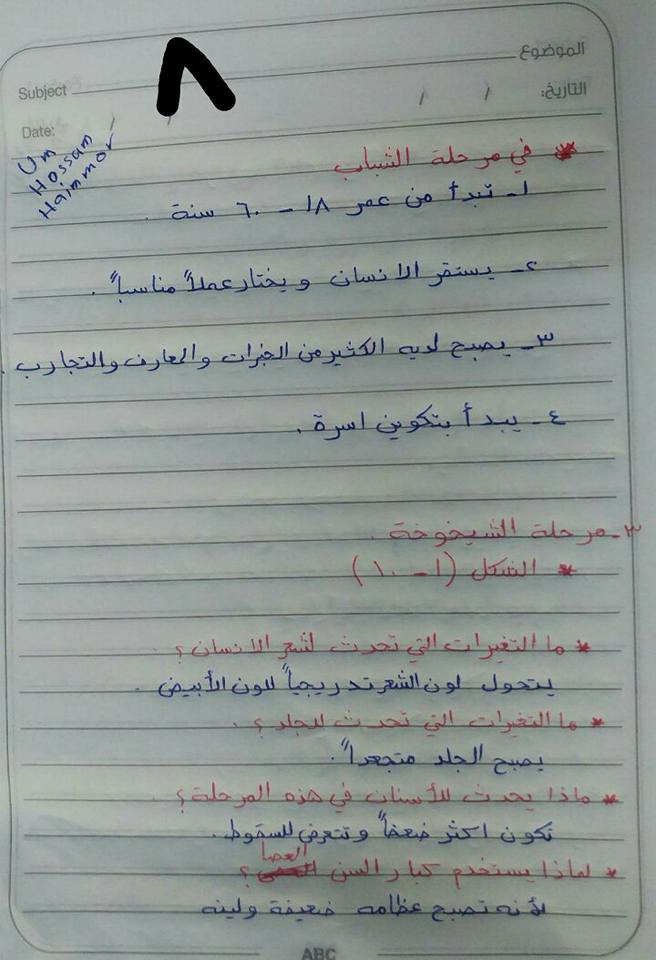 ٨
الموضوع
Subject
التاريخ: / /
Date: / /
Um
Hossam
Haimmor
* في مرحلة الشباب
١- تبدأ من عمر ١٨ - ٦٠ سنة .
٢- يستقر الانسان ويختار عملاً مناسباً .
٣- يصبح لديه الكثير من الخبرات والمعارف والتجارب .
٤- يبدأ بتكوين اسرة .
٣- مرحلة الشيخوخة .
* الشكل (١-١٠)
* ما التغيرات التي تحدث لشعر الانسان ؟ .
يتحول لون الشعر تدريجياً للون الأبيض .
* ما التغيرات التي تحدث للجلد ؟ .
يصبح الجلد متجعداً .
* ماذا يحدث للأسنان في هذه المرحلة ؟
تكون اكثر ضعفاً وتتعرض للسقوط .
* لماذا يستخدم كبار السن العصا ؟
لأنه تصبح عظامه ضعيفة ولينه
ABC